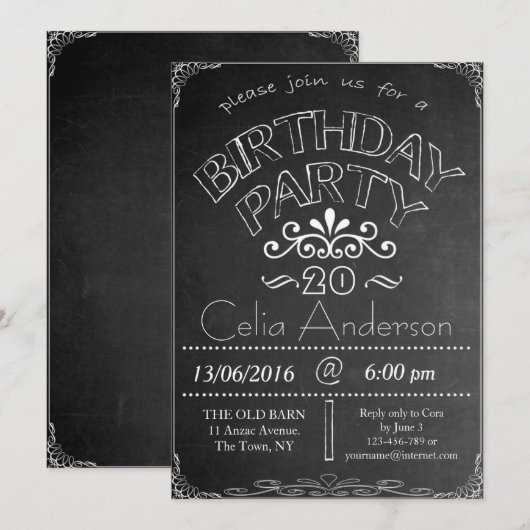 please join us for a
BIRTHDAY
PARTY
20
Celia Anderson
13/06/2016 @ 6:00 pm
THE OLD BARN
11 Anzac Avenue.
The Town, NY
Reply only to Cora
by June 3
123-456-789 or
yourname@internet.com